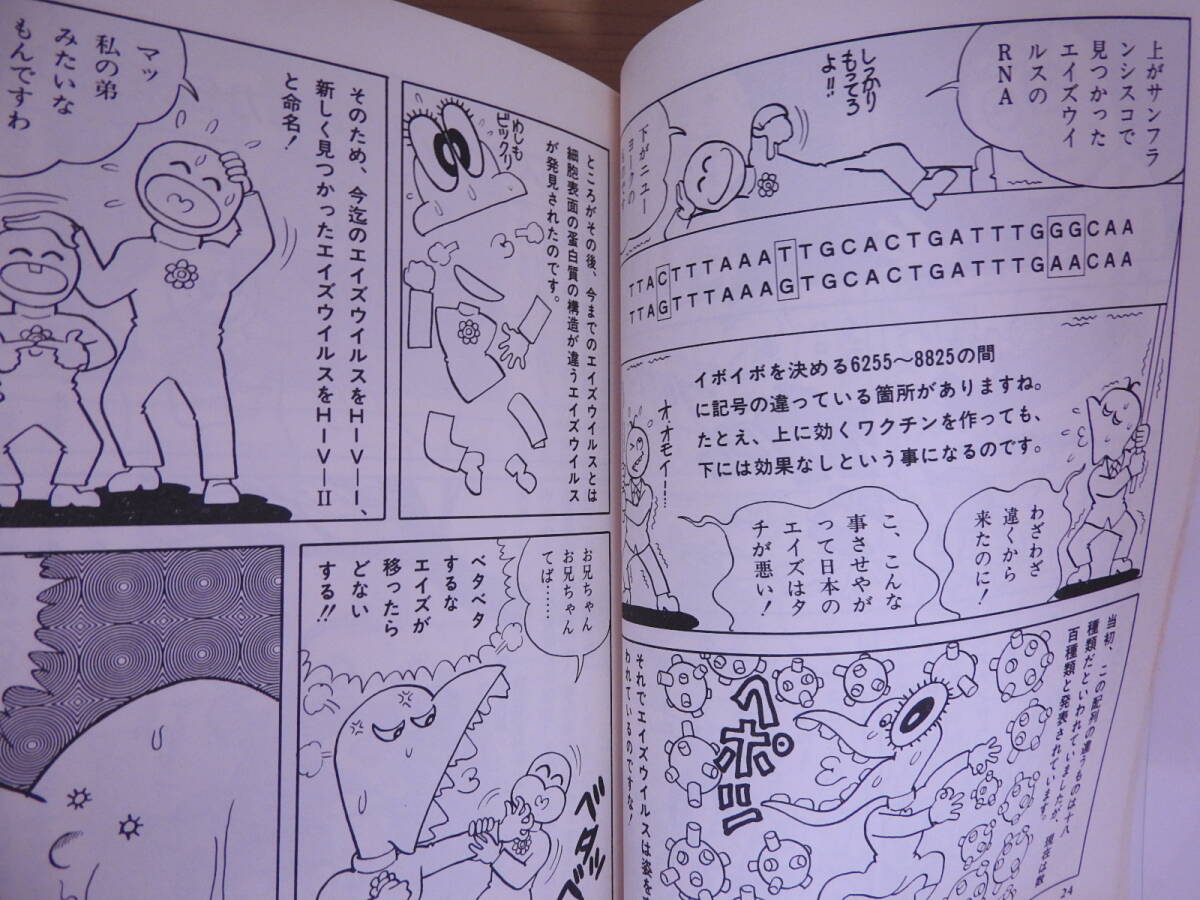 上がサンフラ
ンシスコで
見つかった
エイズウイ
ルスの
RNA
しっかり
もってろ
よ!!
下がニュー
ヨークの
TTACTTTAAATTTGCACTGATTTGGGCAA
TTAGTTTAAAGTGCACTGATTTGAACAA
イボイボを決める6255〜8825の間
に記号の違っている箇所がありますね。
たとえ、上に効くワクチンを作っても、
下には効果なしという事になるのです。
わざわざ
遠くから
来たのに!
こ、こんな
事させやが
って日本の
エイズはタ
チが悪い!
オ、オモイー!…
当初、この配列の違うものは十八
種類だといわれていましたが、現在は数
百種類と発表されています。
ヘポッ
それでエイズウイルスは姿を
われているのですな!
24
ところがその後、今までのエイズウイルスとは
細胞表面の蛋白質の構造が違うエイズウイルス
が発見されたのです。
わしも
ビックリ
そのため、今迄のエイズウイルスをHIV―I、
新しく見つかったエイズウイルスをHIV―II
と命名!
マッ
私の弟
みたいな
もんですわ
お兄ちゃん
お兄ちゃん
てば……
ベタベタ
するな
エイズが
移ったら
どない
する!!
ベタッ
ベ